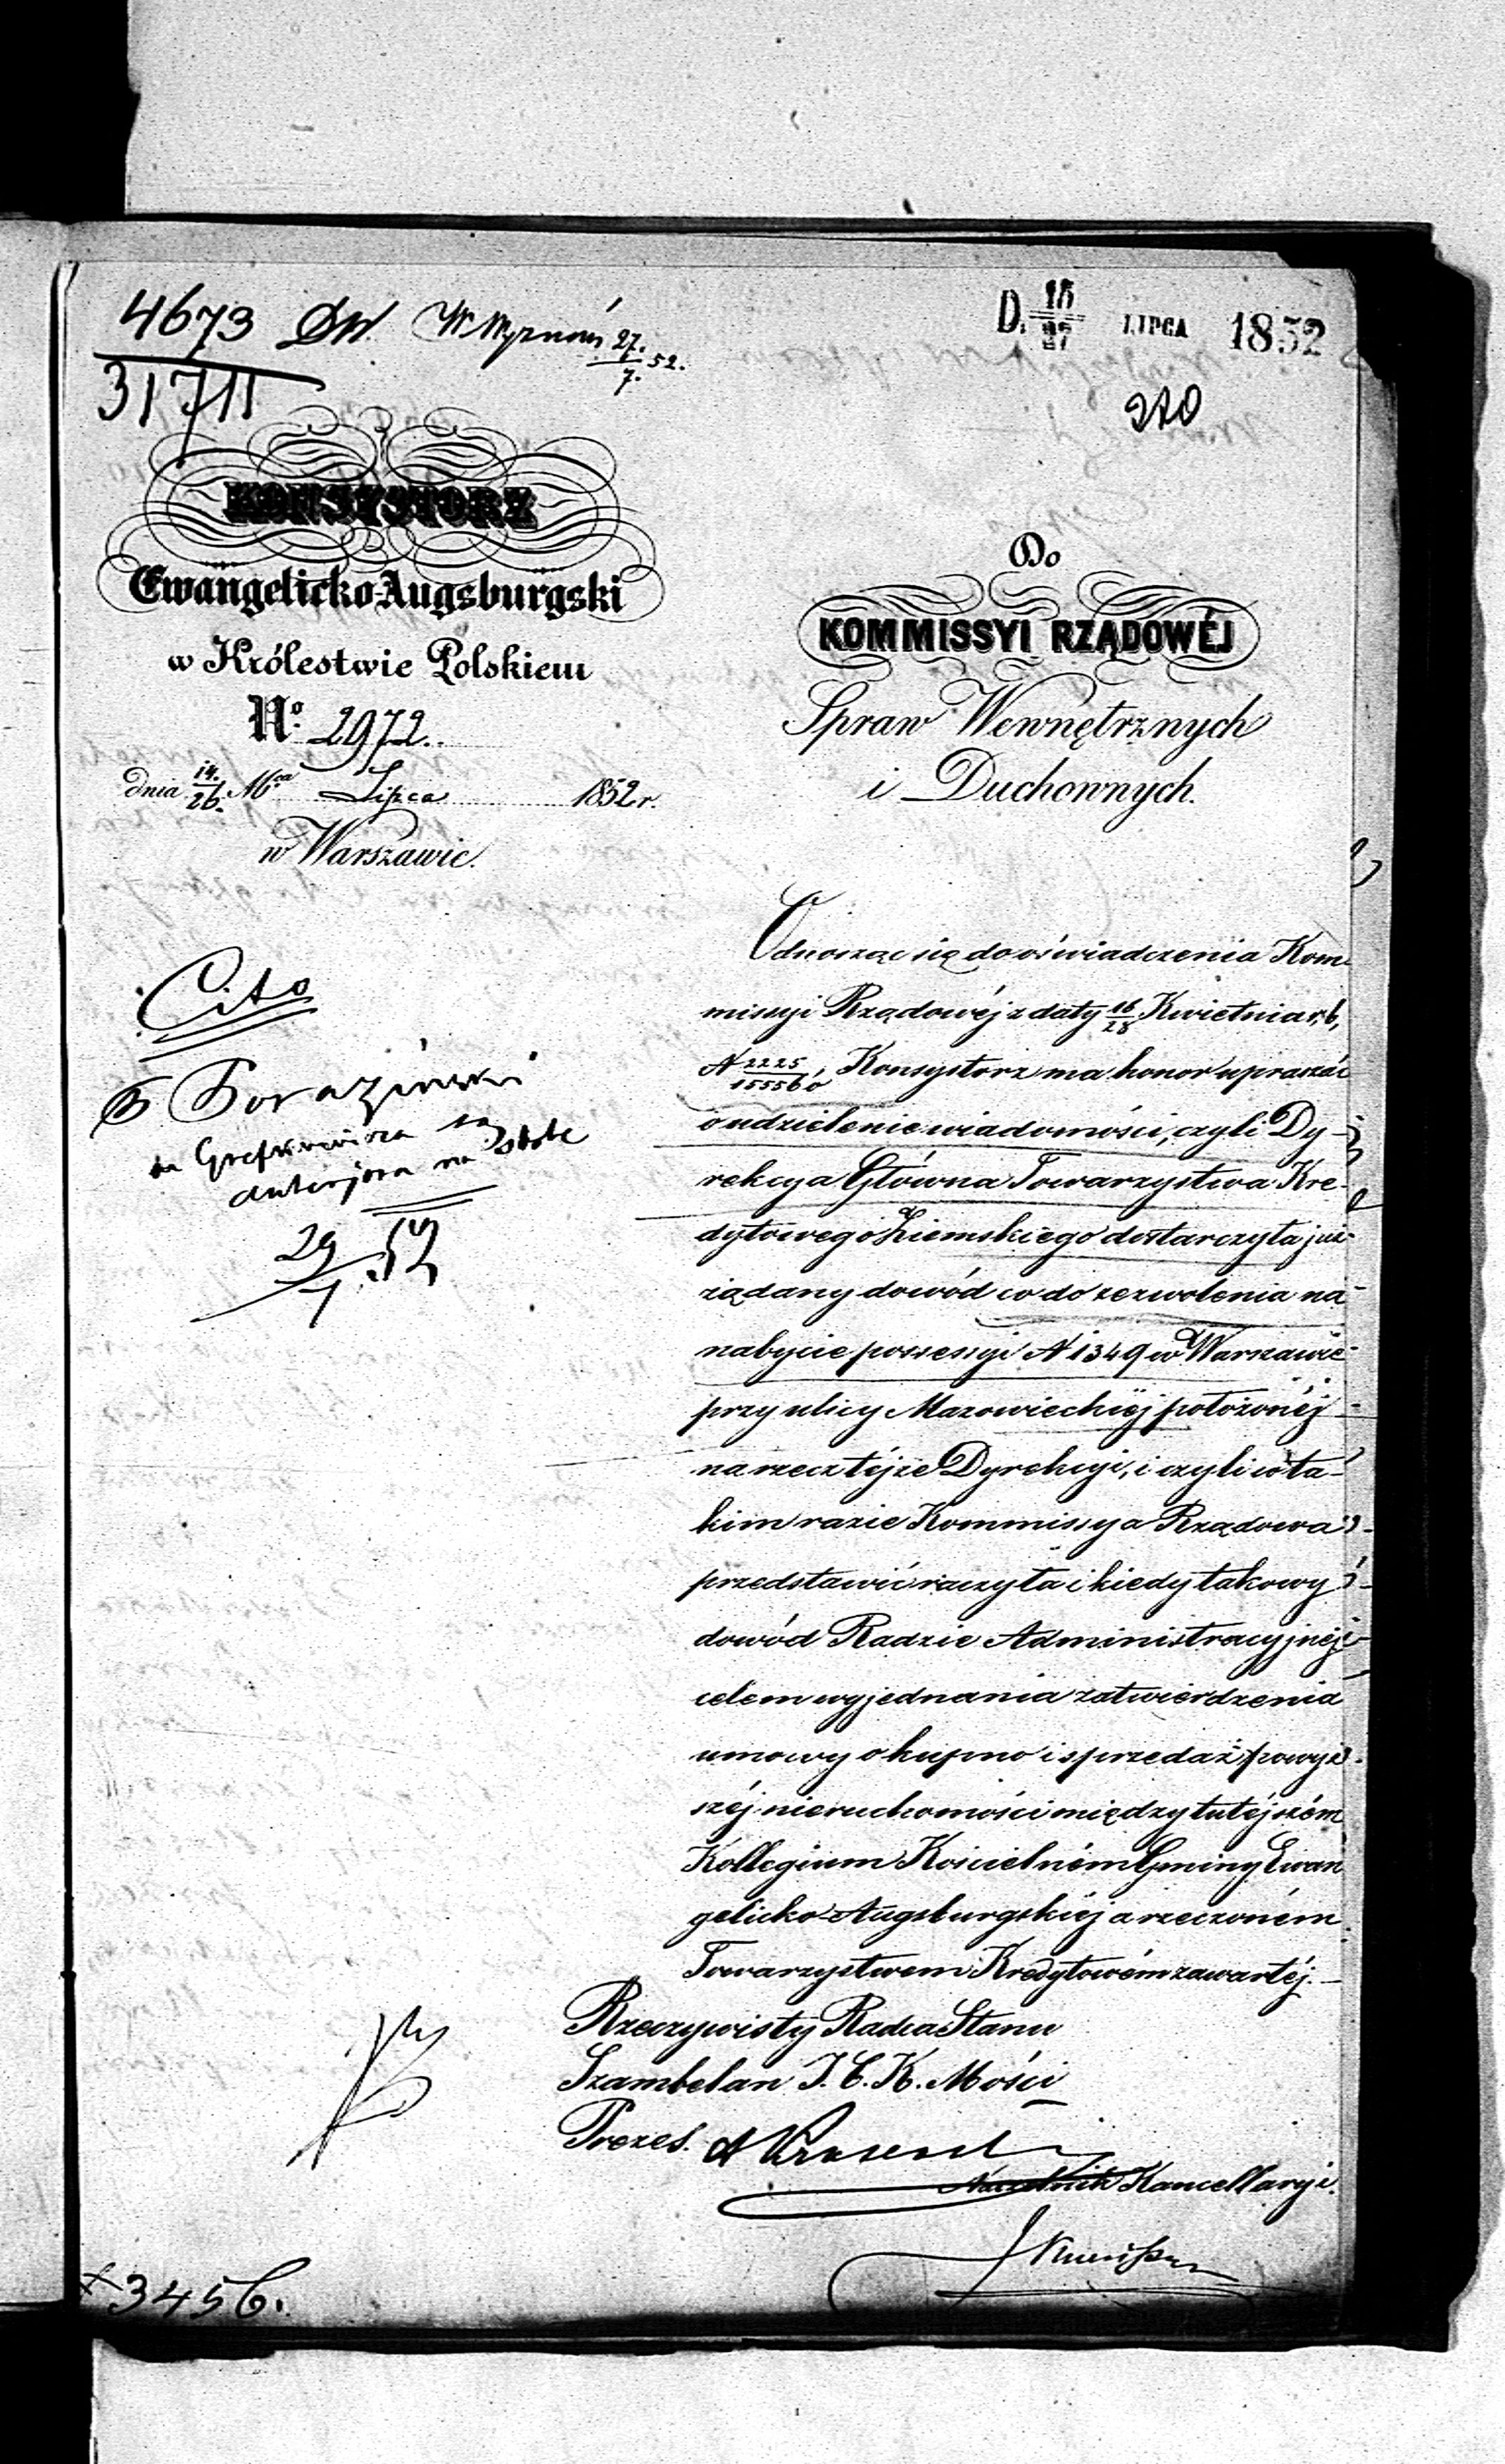 4673 DW. W Wyznań 27./7. 52.
31711
D. 15/27 LIPCA 1852
270
KONSYSTORZ
Ewangelicko-Augsburgski
w Królestwie Polskiem
No. 2972.
dnia 14./26. Mca Lipca 1852 r.
w Warszawie.
Do
KOMMISSYI RZĄDOWÉJ
Spraw Wewnętrznych
i Duchownych.
Cito
29/7 52
Odnosząc się do oświadczenia Kom-
missyi Rządowéj z daty 16/28 Kwietnia r. b,
N 2225/15556, Konsystorz ma honor upraszać
o udzielenie wiadomości, czyli Dy-
rekcya Główna Towarzystwa Kre-
dytowego Ziemskiego dostarczyła już
żądany dowód co do zezwolenia na
nabycie possessyi N 1349 w Warszawie
przy ulicy Mazowieckiéj położonéj
na rzecz téjże Dyrekcyi, i czyli w ta-
kim razie Kommissya Rządowa
przedstawić raczyła i kiedy takowy
dowód Radzie Administracyjnéj
celem wyjednania zatwierdzenia
umowy o kupno i sprzedaż powyż-
széj nieruchomości między tutéjszém
Kollegium Kościelném Gminy Ewan
gelicko-Augsburgskiéj a rzeczoném
Towarzystwem Kredytowém zawartéj.
Rzeczywisty Radca Stanu
Szambelan J. C. K. Mości
Prezes.
Naczelnik Kancellaryi.
3456.